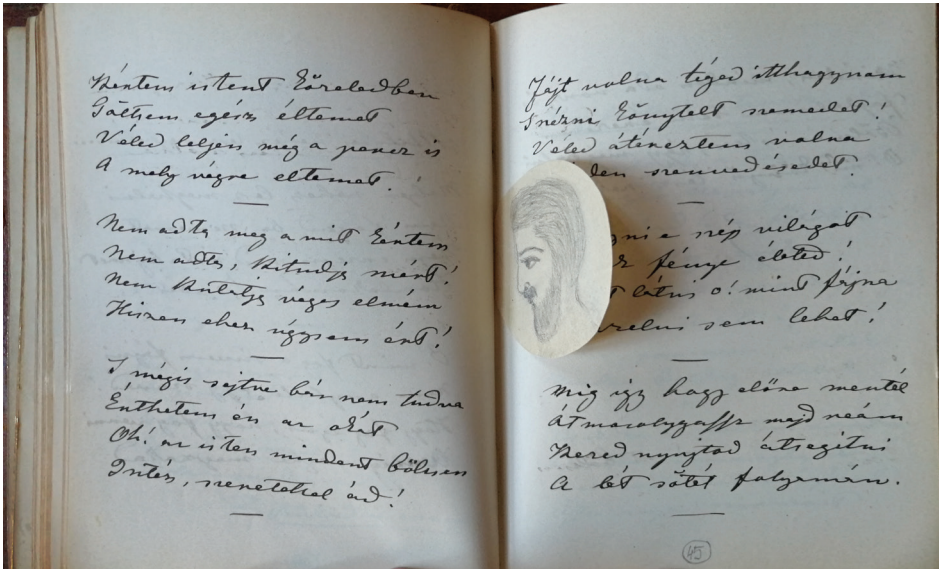 Kértem istent Közeledben
Töltsem egész éltemet
Véled leljen még a perez is
A mely végre eltemet.
Nem adta meg a mit kértem
Nem adta, Kitudja miért!
Nem Kutatja véges elmém
Hiszen ehez úgysem ért!
S mégis sejtve bár nem tudva
Érthetem én az okát
Oh! az isten mindent bölcsen
Intéz, szeretettel ád!
Fájt volna téged itthagynom
S nézni Könytelt szemedet!
Véled átéreztem volna
den szenvedésedet.
ni e szép világot
fénye életed!
látni o! mint fájna
elni sem lehet!
Mig igy hogy előre mentél
Át mosolyogssz majd reám
Kezed nyujtod átsegitni
A lét sötét folyamán.
45